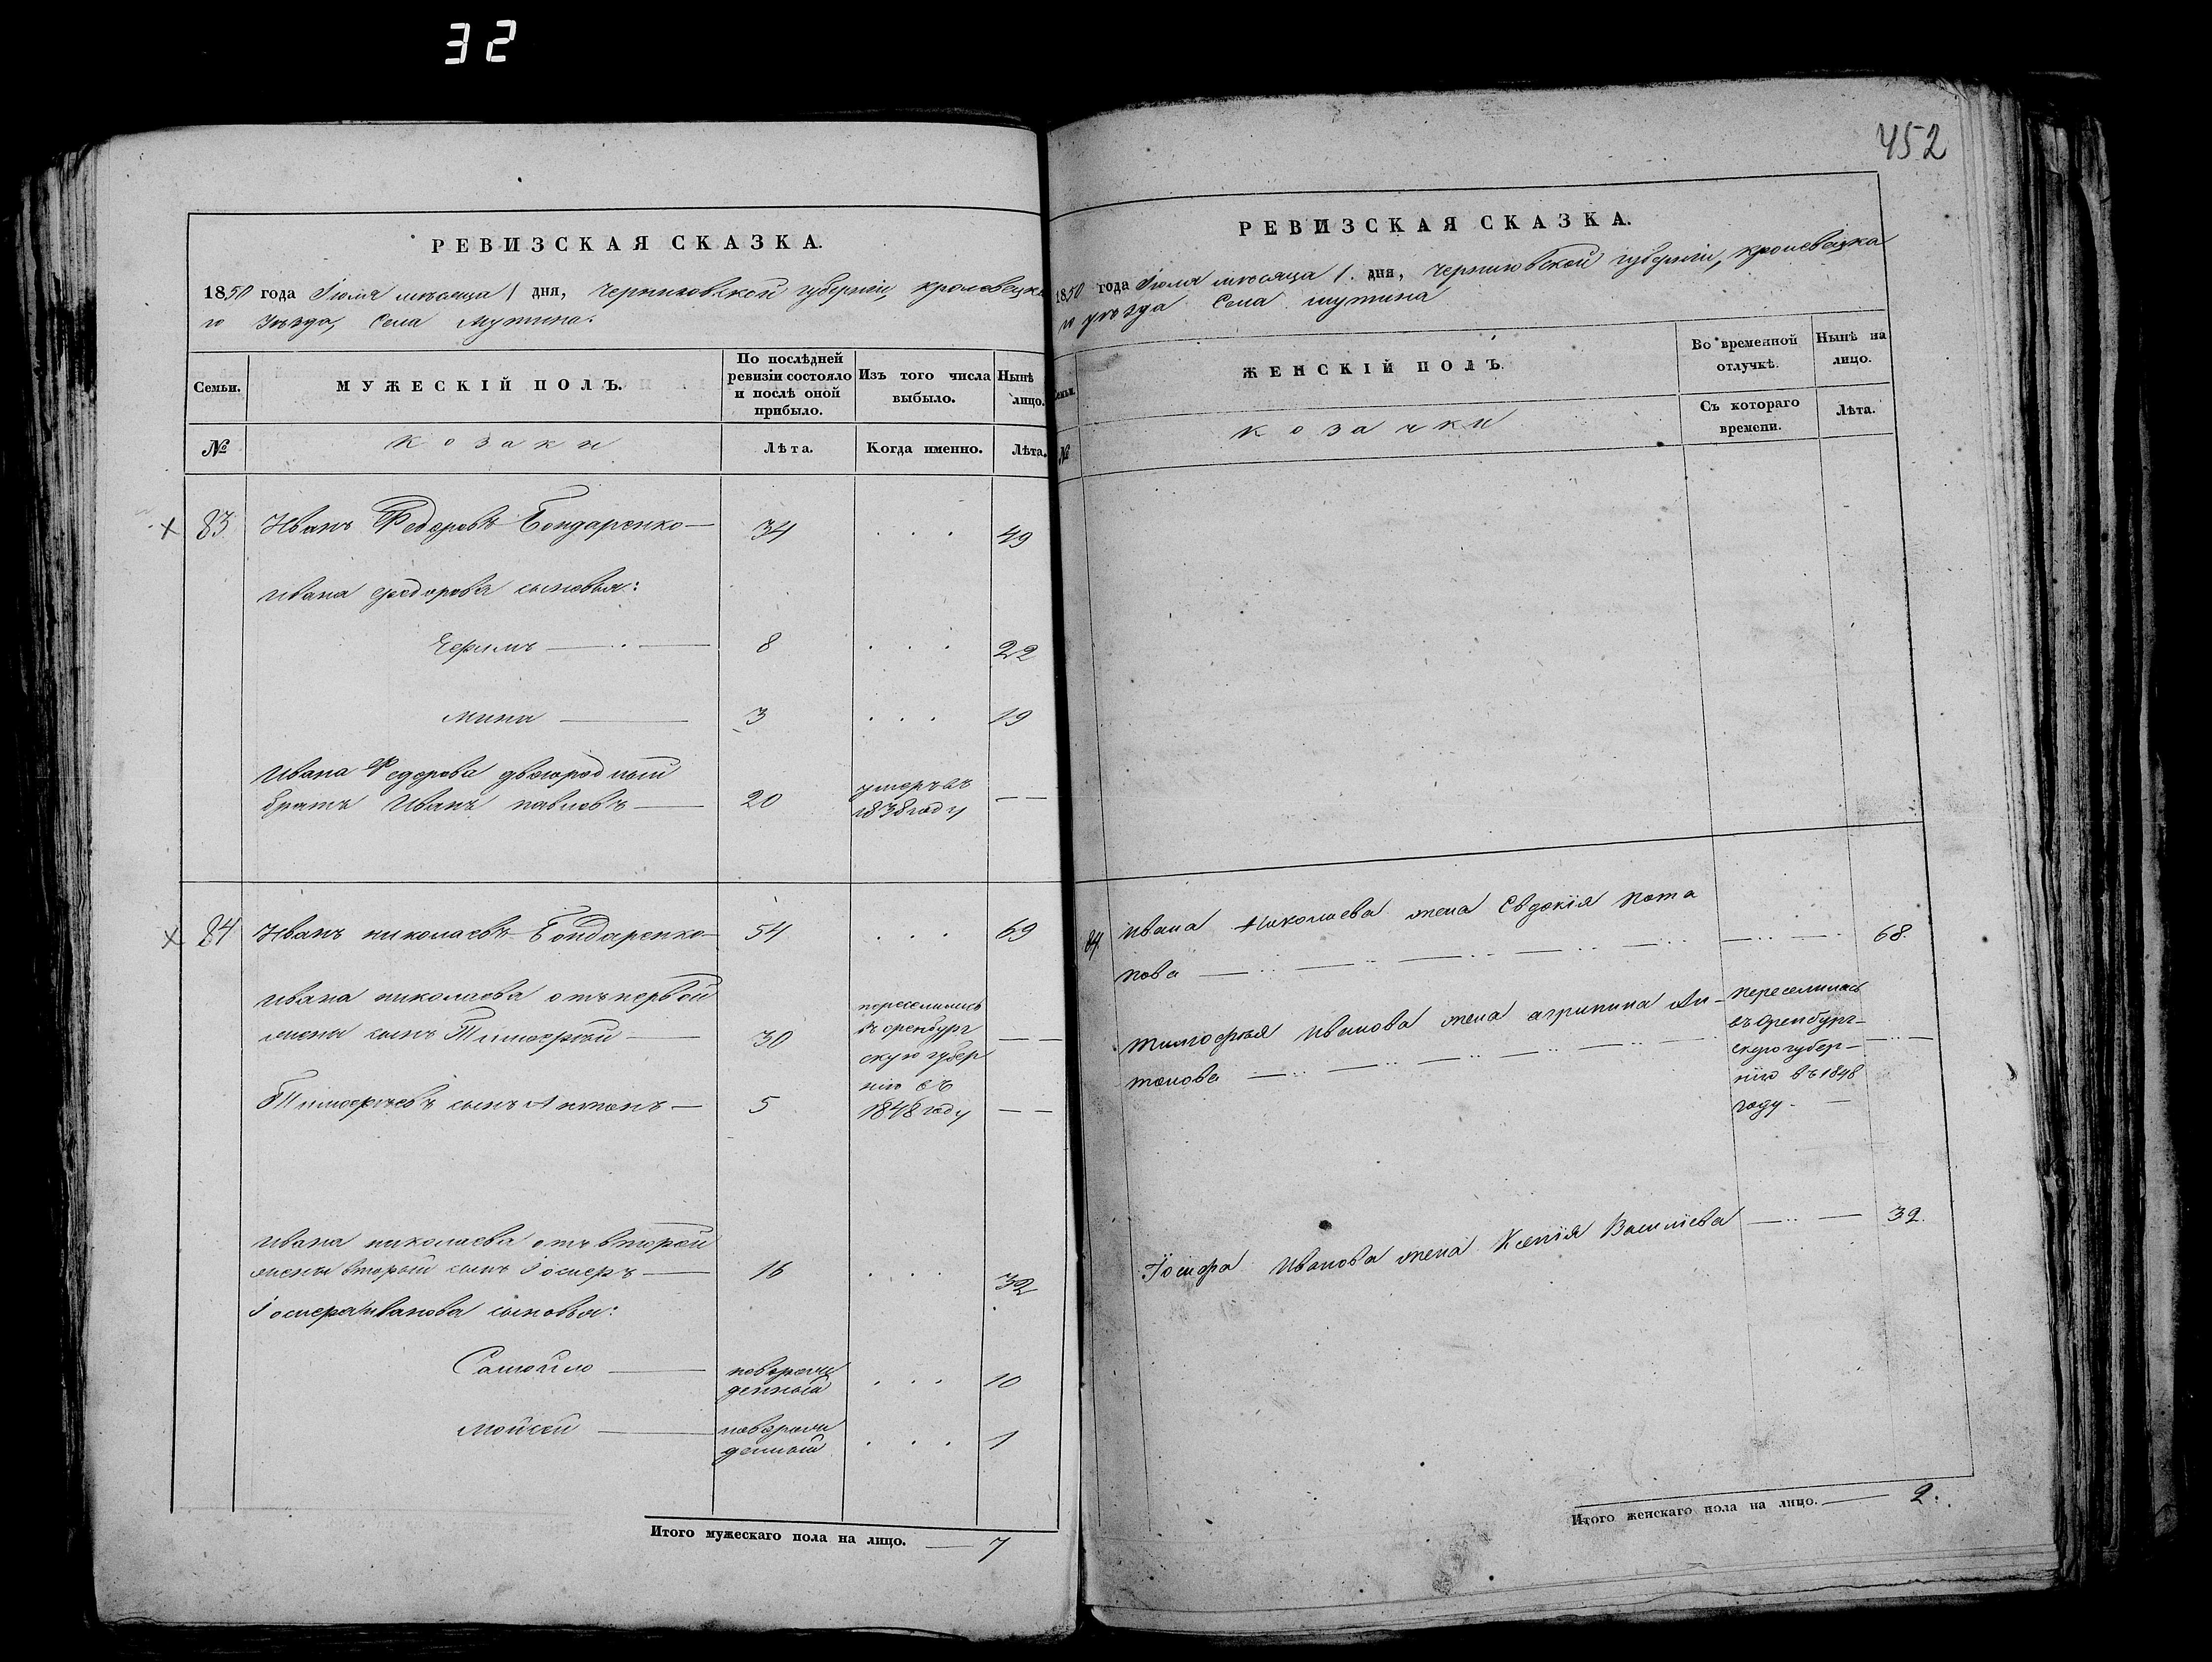 32
452
РЕВИЗСКАЯ СКАЗКА.
1850 года Іюля мѣсяца 1 дня, Черниговской губерніи, Кролевецка
го уѣзда, Села Мутина.
Семьи.
МУЖЕСКІЙ ПОЛЪ.
По послѣдней ревизіи состояло и послѣ оной прибыло.
Изъ того числа выбыло.
Нынѣ лицо.
№
козаки
Лѣта.
Когда именно.
Лѣта.
83 Иванъ Федоровъ Бондаренко — 34 . . . 49
Ивана Федорова сыновья:
8 . . . 22
Мина — 3 . . . 19
Ивана Федорова двоюродный
братъ Иванъ Павловъ — 20 умеръ въ — —
1838 году
84 Иванъ Николаевъ Бондаренко — 54 . . . 69
Ивана Николаева отъ первой
жены сынъ Тимофѣй — 30 — —
Тимофѣевъ сынъ Антонъ — 5 — —
переселились
въ Оренбург
скую губер
нію въ
1848 году
Ивана Николаева отъ второй
жены второй сынъ Іосифъ — 16 . . . 32
Іосифа Иванова сыновья:
Самойло — новорож
денный . . . 10
Мойсей — новорож
денный . . . 1
Итого мужескаго пола на лицо. — 7
РЕВИЗСКАЯ СКАЗКА.
1850 года Іюля мѣсяца 1. дня, Черниговской губерніи, Кролевецка
го уѣзда Села Мутина
Семьи.
ЖЕНСКІЙ ПОЛЪ.
Во временной отлучкѣ.
Нынѣ на лицо.
№
козачки
Съ котораго времени.
Лѣта.
84. Ивана Николаева жена Евдокія Пота
пова — 68.
Тимофѣя Иванова жена Агрипина Ан-
тонова —
переселилась
въ Оренбург-
скую губер-
нію въ 1848
году. —
Іосифа Иванова жена Ксенія Васильева — 32.
Итого женскаго пола на лицо. — 2.